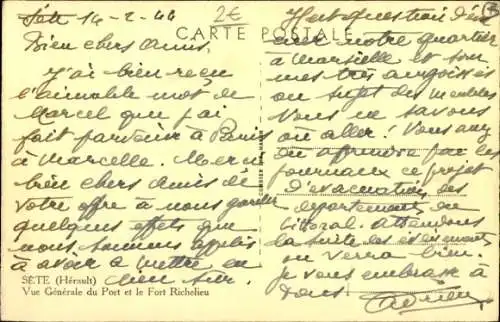 Sète 14-2-44
2€
CARTE POSTALE
Bien chers Amis.
J'ai bien reçu
l'aimable mot de
Marcel que j'ai
fait parvenir à Paris
à Marcelle. Merci
bien chers Amis de
votre offre à nous garder
quelques effets que
nous sommes appelés
à avoir à mettre en
lieu sûr.
SÈTE (Hérault)
Vue Générale du Port et le Fort Richelieu
Il est question
notre quartier
à Marseille et
très angoissés
au sujet des meubles
Nous ne savons
où aller! Vous avez
dû apprendre par les
journaux ce projet
d'évacuation des
départements du
littoral. Attendons
la suite des évènements
on verra bien.
Je vous embrasse à
tous
Adrien